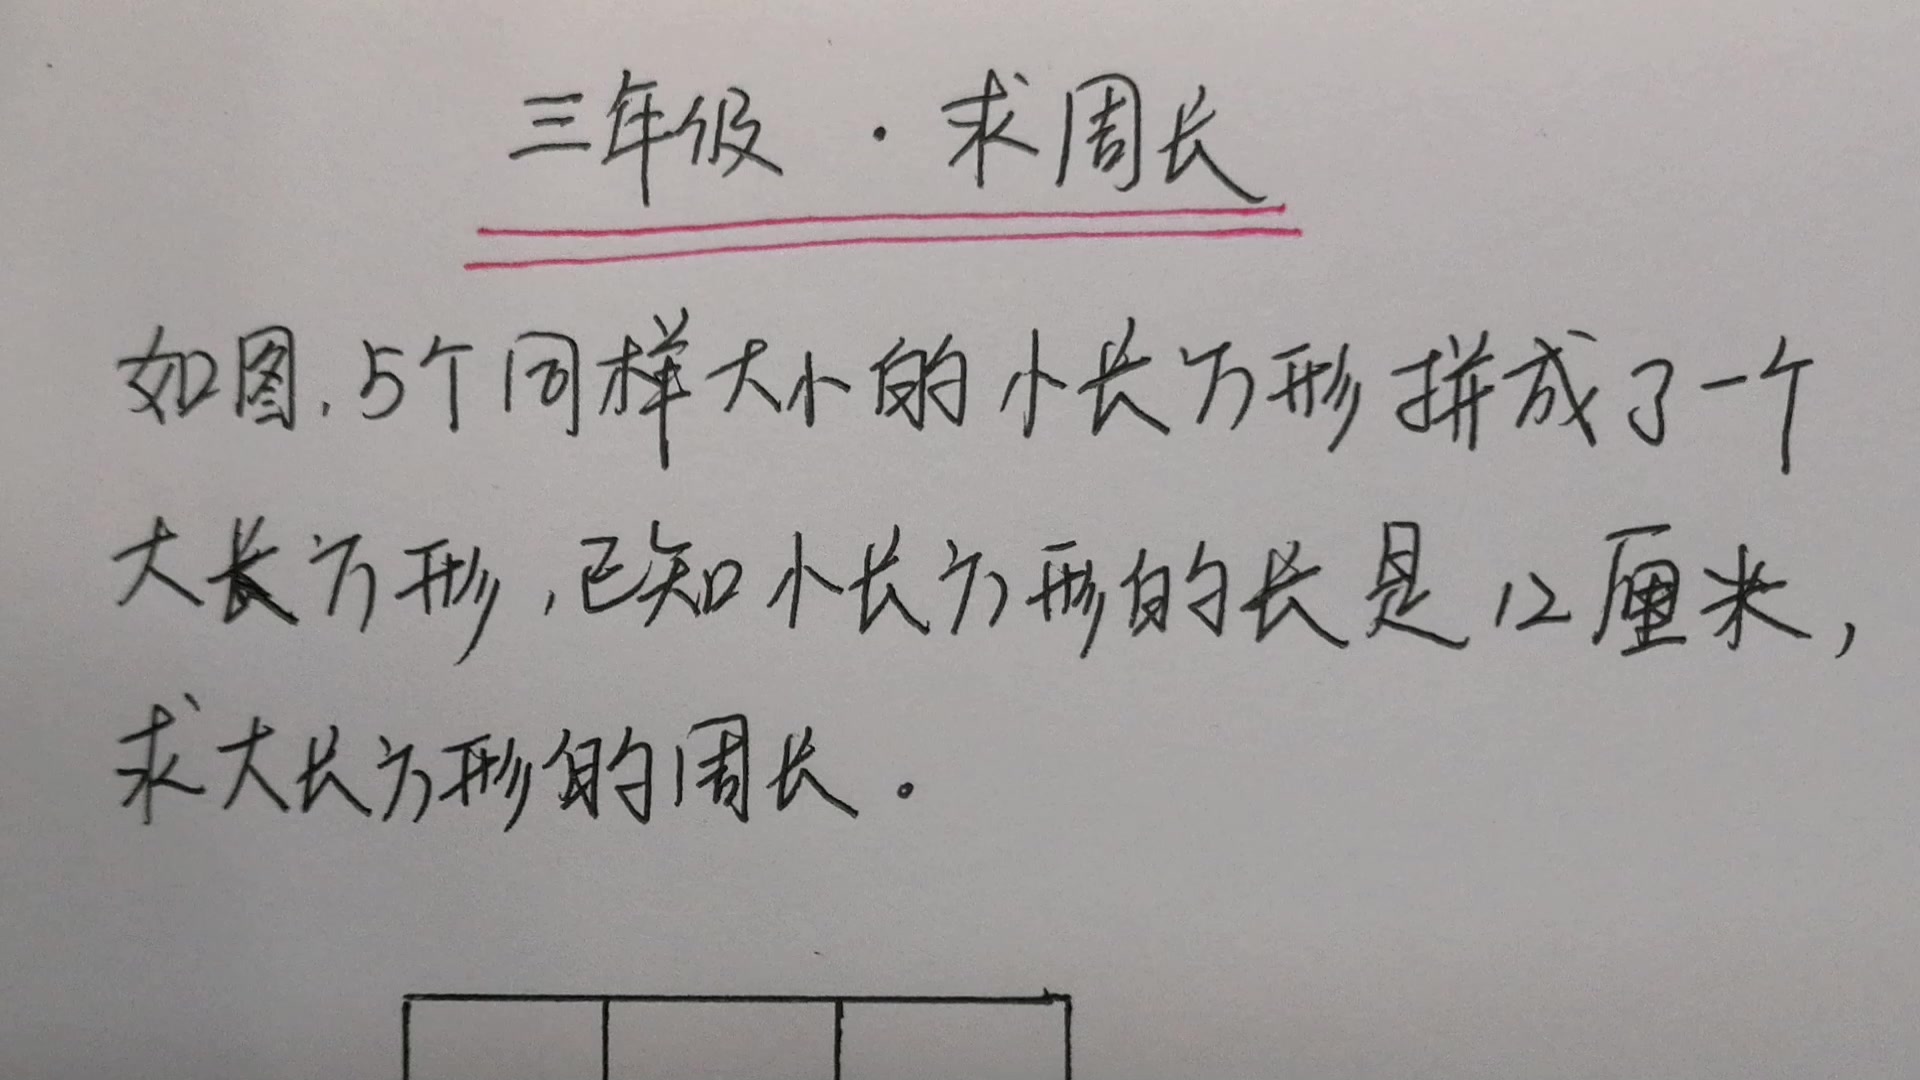 三年级 · 求周长
如图,5个同样大小的小长方形拼成了一个
大长方形,已知小长方形的长是12厘米,
求大长方形的周长.